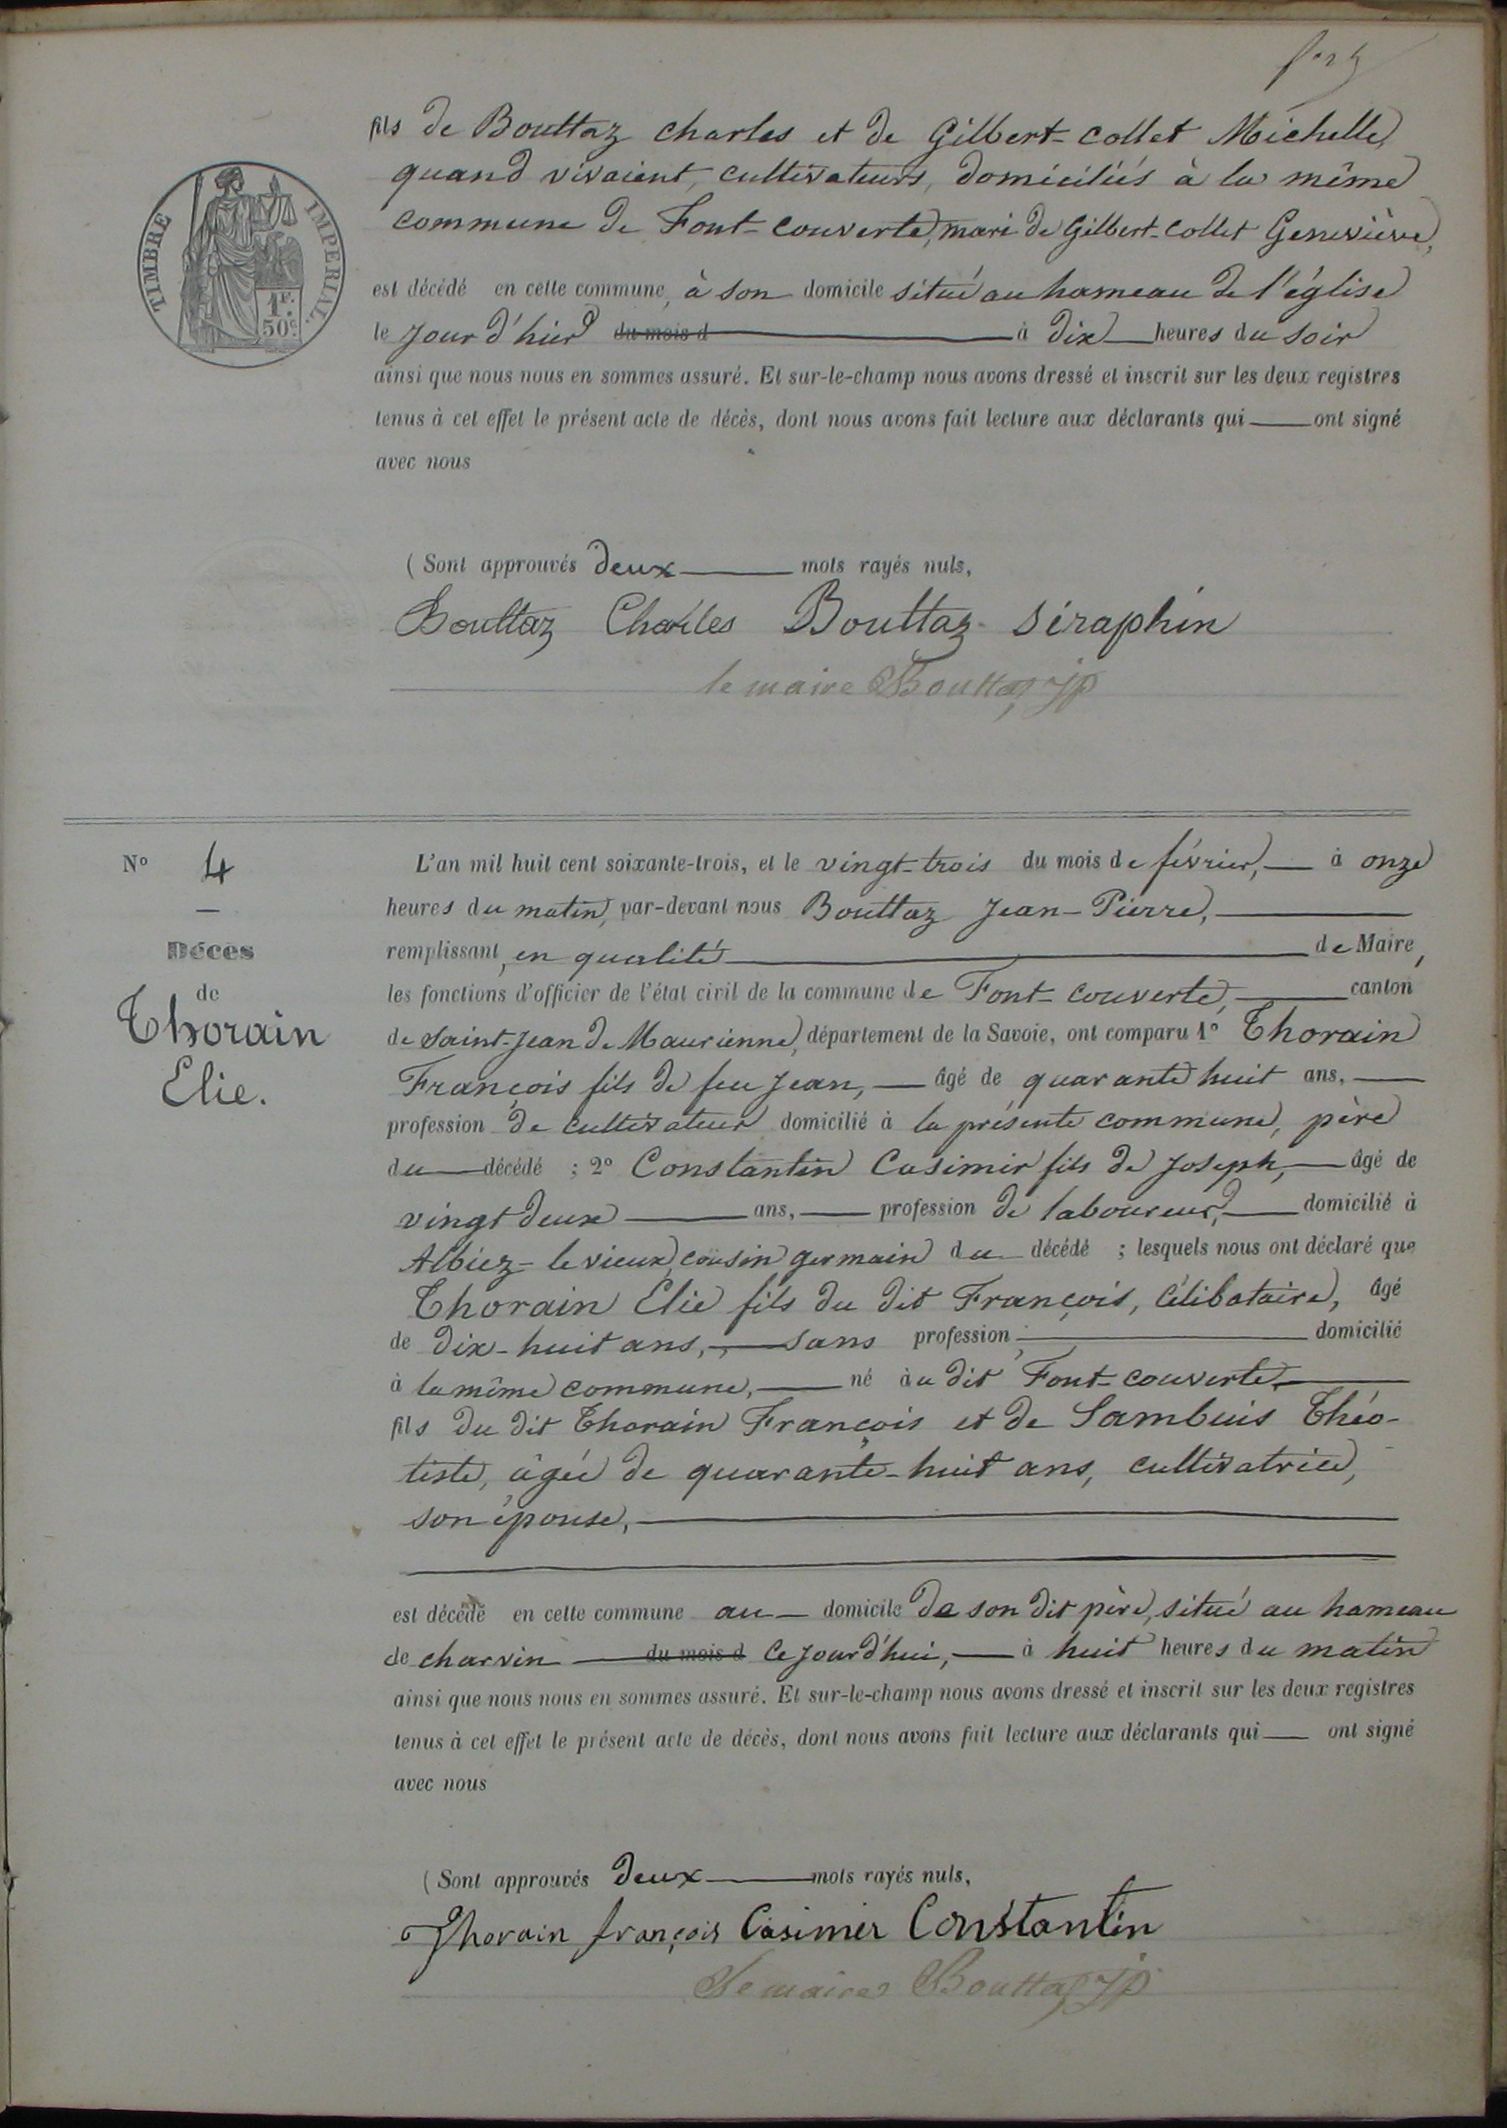 fils de Bouttaz charles et de Gilbert-collet Michelle,
quand vivaient, cultivateurs, domiciliés à la même
commune de Font-couverte, mari de Gilbert-collet Geneviève,
TIMBRE IMPERIAL.
1F.
50c
est décédé en cette commune, à son domicile situé au hameau de l'église
le jour d'hier du mois d à dix heures du soir
ainsi que nous nous en sommes assuré. Et sur-le-champ nous avons dressé et inscrit sur les deux registres
tenus à cet effet le présent acte de décès, dont nous avons fait lecture aux déclarants qui ont signé
avec nous
(Sont approuvés deux mots rayés nuls,
Bouttaz Charles Bouttaz Séraphin
le maire Bouttaz JP
No 4
Décès
de
Thorain
Elie.
L'an mil huit cent soixante-trois, et le vingt-trois du mois de février, à onze
heures du matin, par-devant nous Bouttaz Jean-Pierre,
remplissant, en qualité de Maire,
les fonctions d'officier de l'état civil de la commune de Font-couverte, canton
de Saint-Jean de Maurienne, département de la Savoie, ont comparu 1o Thorain
François fils de feu Jean, âgé de quarante huit ans,
profession de cultivateur domicilié à la présente commune, père
du décédé ; 2o Constantin Casimir fils de Joseph, âgé de
vingt deux ans, profession de laboureur, domicilié à
Albiez-le vieux, cousin germain du décédé ; lesquels nous ont déclaré que
Thorain Elie fils du dit François, célibataire, âgé
de dix-huit ans, sans profession, domicilié
à la même commune, né au dit Font-couverte,
fils du dit Thorain François et de Sambuis Théo-
tiste, âgée de quarante-huit ans, cultivatrice,
son épouse,
est décédé en cette commune au domicile de son dit père, situé au hameau
de charvin du mois d ce jourd'hui, à huit heures du matin
ainsi que nous nous en sommes assuré. Et sur-le-champ nous avons dressé et inscrit sur les deux registres
tenus à cet effet le présent acte de décès, dont nous avons fait lecture aux déclarants qui ont signé
avec nous
(Sont approuvés deux mots rayés nuls,
Thorain françois Casimir Constantin
Le maire Bouttaz JP